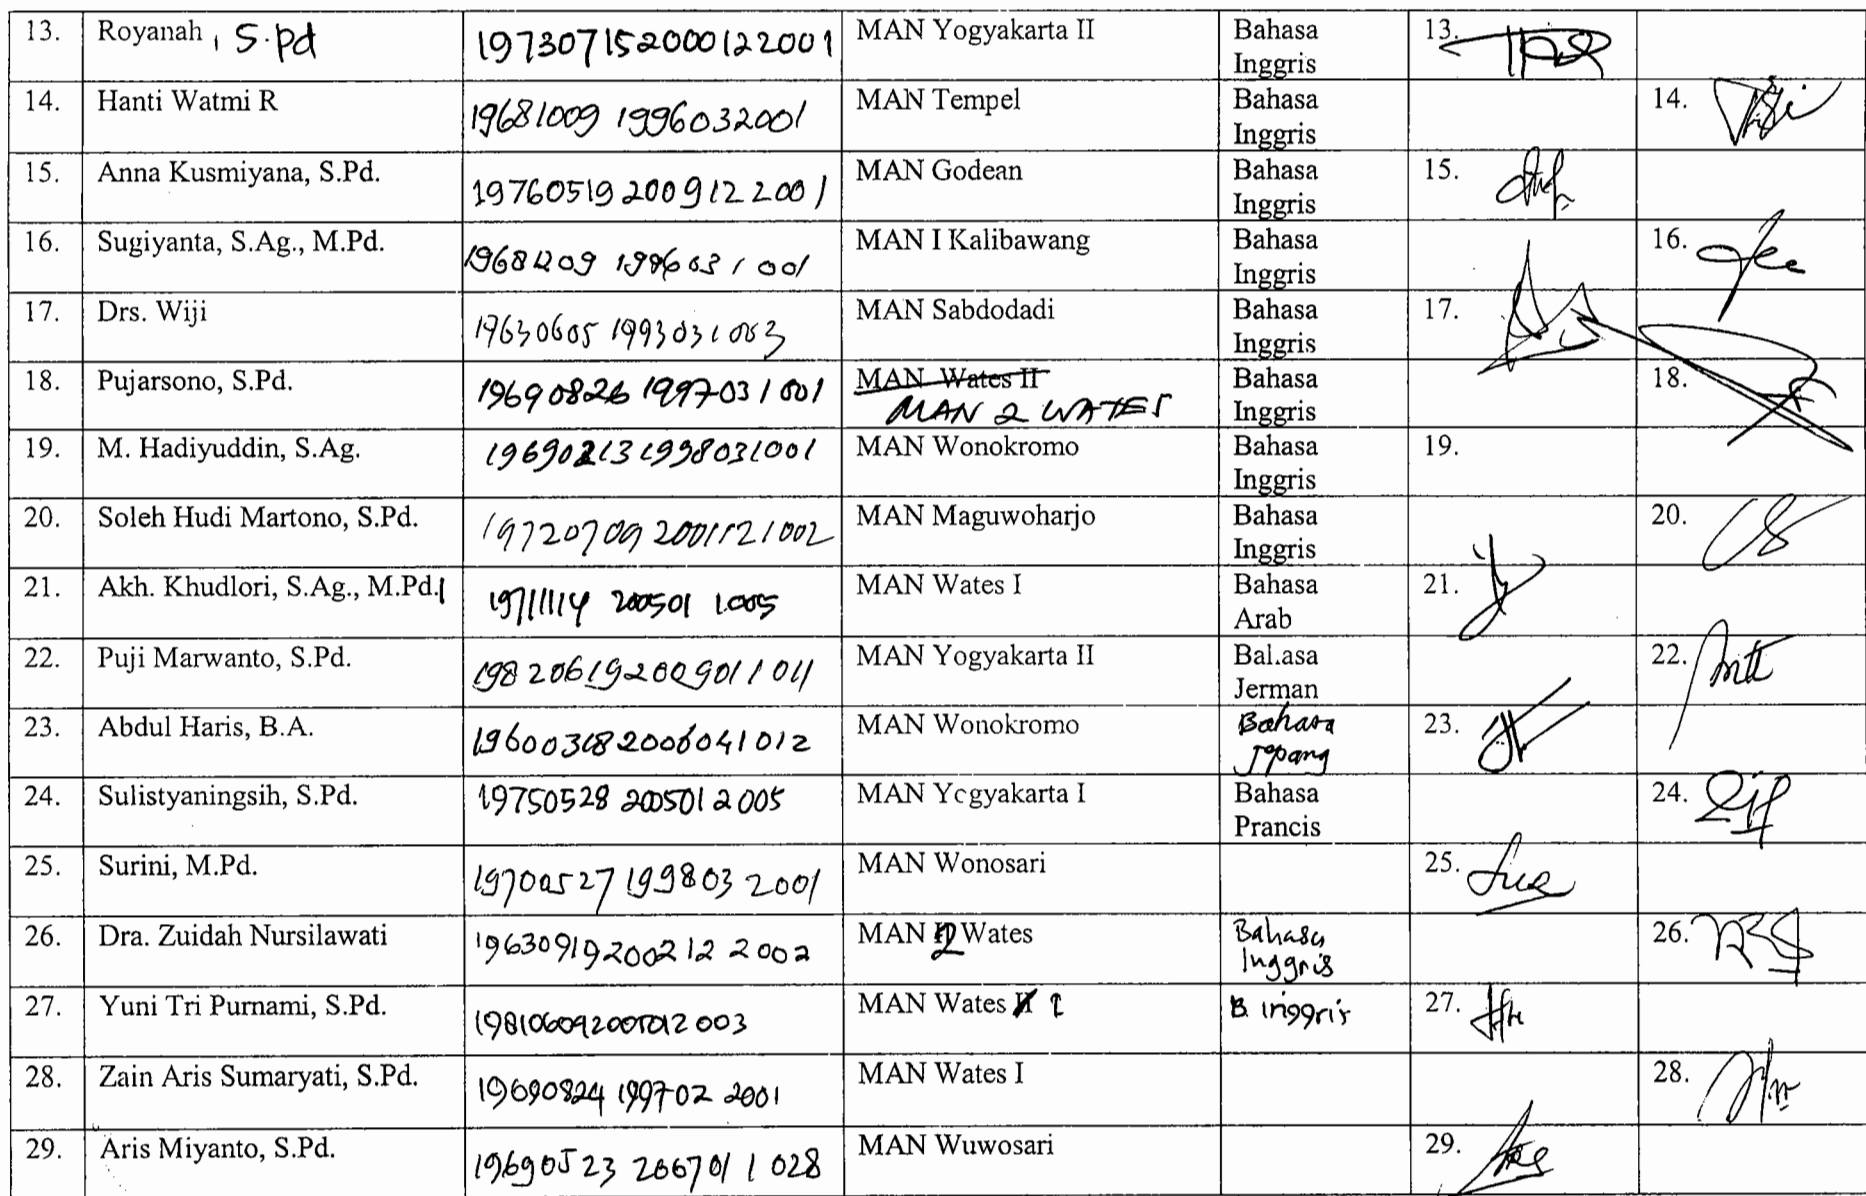 13. Royanah, S.pd 197307152000122001 MAN Yogyakarta II Bahasa 13.
Inggris
14. Hanti Watmi R 19681009 1996032001 MAN Tempel Bahasa 14.
Inggris
15. Anna Kusmiyana, S.Pd. 19760519 200912 2001 MAN Godean Bahasa 15.
Inggris
16. Sugiyanta, S.Ag., M.Pd. 19681209 199603 1 001 MAN I Kalibawang Bahasa 16.
Inggris
17. Drs. Wiji 19630605 199303 1 003 MAN Sabdodadi Bahasa 17.
Inggris
18. Pujarsono, S.Pd. 19690826 199703 1 001 MAN Wates II Bahasa 18.
MAN 2 WATES Inggris
19. M. Hadiyuddin, S.Ag. 196902131998031001 MAN Wonokromo Bahasa 19.
Inggris
20. Soleh Hudi Martono, S.Pd. 19720709 2001121002 MAN Maguwoharjo Bahasa 20.
Inggris
21. Akh. Khudlori, S.Ag., M.Pd.I 19711114 200501 1005 MAN Wates I Bahasa 21.
Arab
22. Puji Marwanto, S.Pd. 198206192009011011 MAN Yogyakarta II Bal.asa 22.
Jerman
23. Abdul Haris, B.A. 196003182006041012 MAN Wonokromo Bahasa 23.
Jepang
24. Sulistyaningsih, S.Pd. 19750528 200501 2005 MAN Ycgyakarta I Bahasa 24.
Prancis
25. Surini, M.Pd. 19700527 199803 2001 MAN Wonosari 25.
26. Dra. Zuidah Nursilawati 19630919200212 2 002 MAN 2 Wates Bahasa 26.
Inggris
27. Yuni Tri Purnami, S.Pd. MAN Wates 1 B. Inggris 27.
28. Zain Aris Sumaryati, S.Pd. 19690824 199702 2001 MAN Wates I 28.
29. Aris Miyanto, S.Pd. 19690523 200701 1 028 MAN Wuwosari 29.